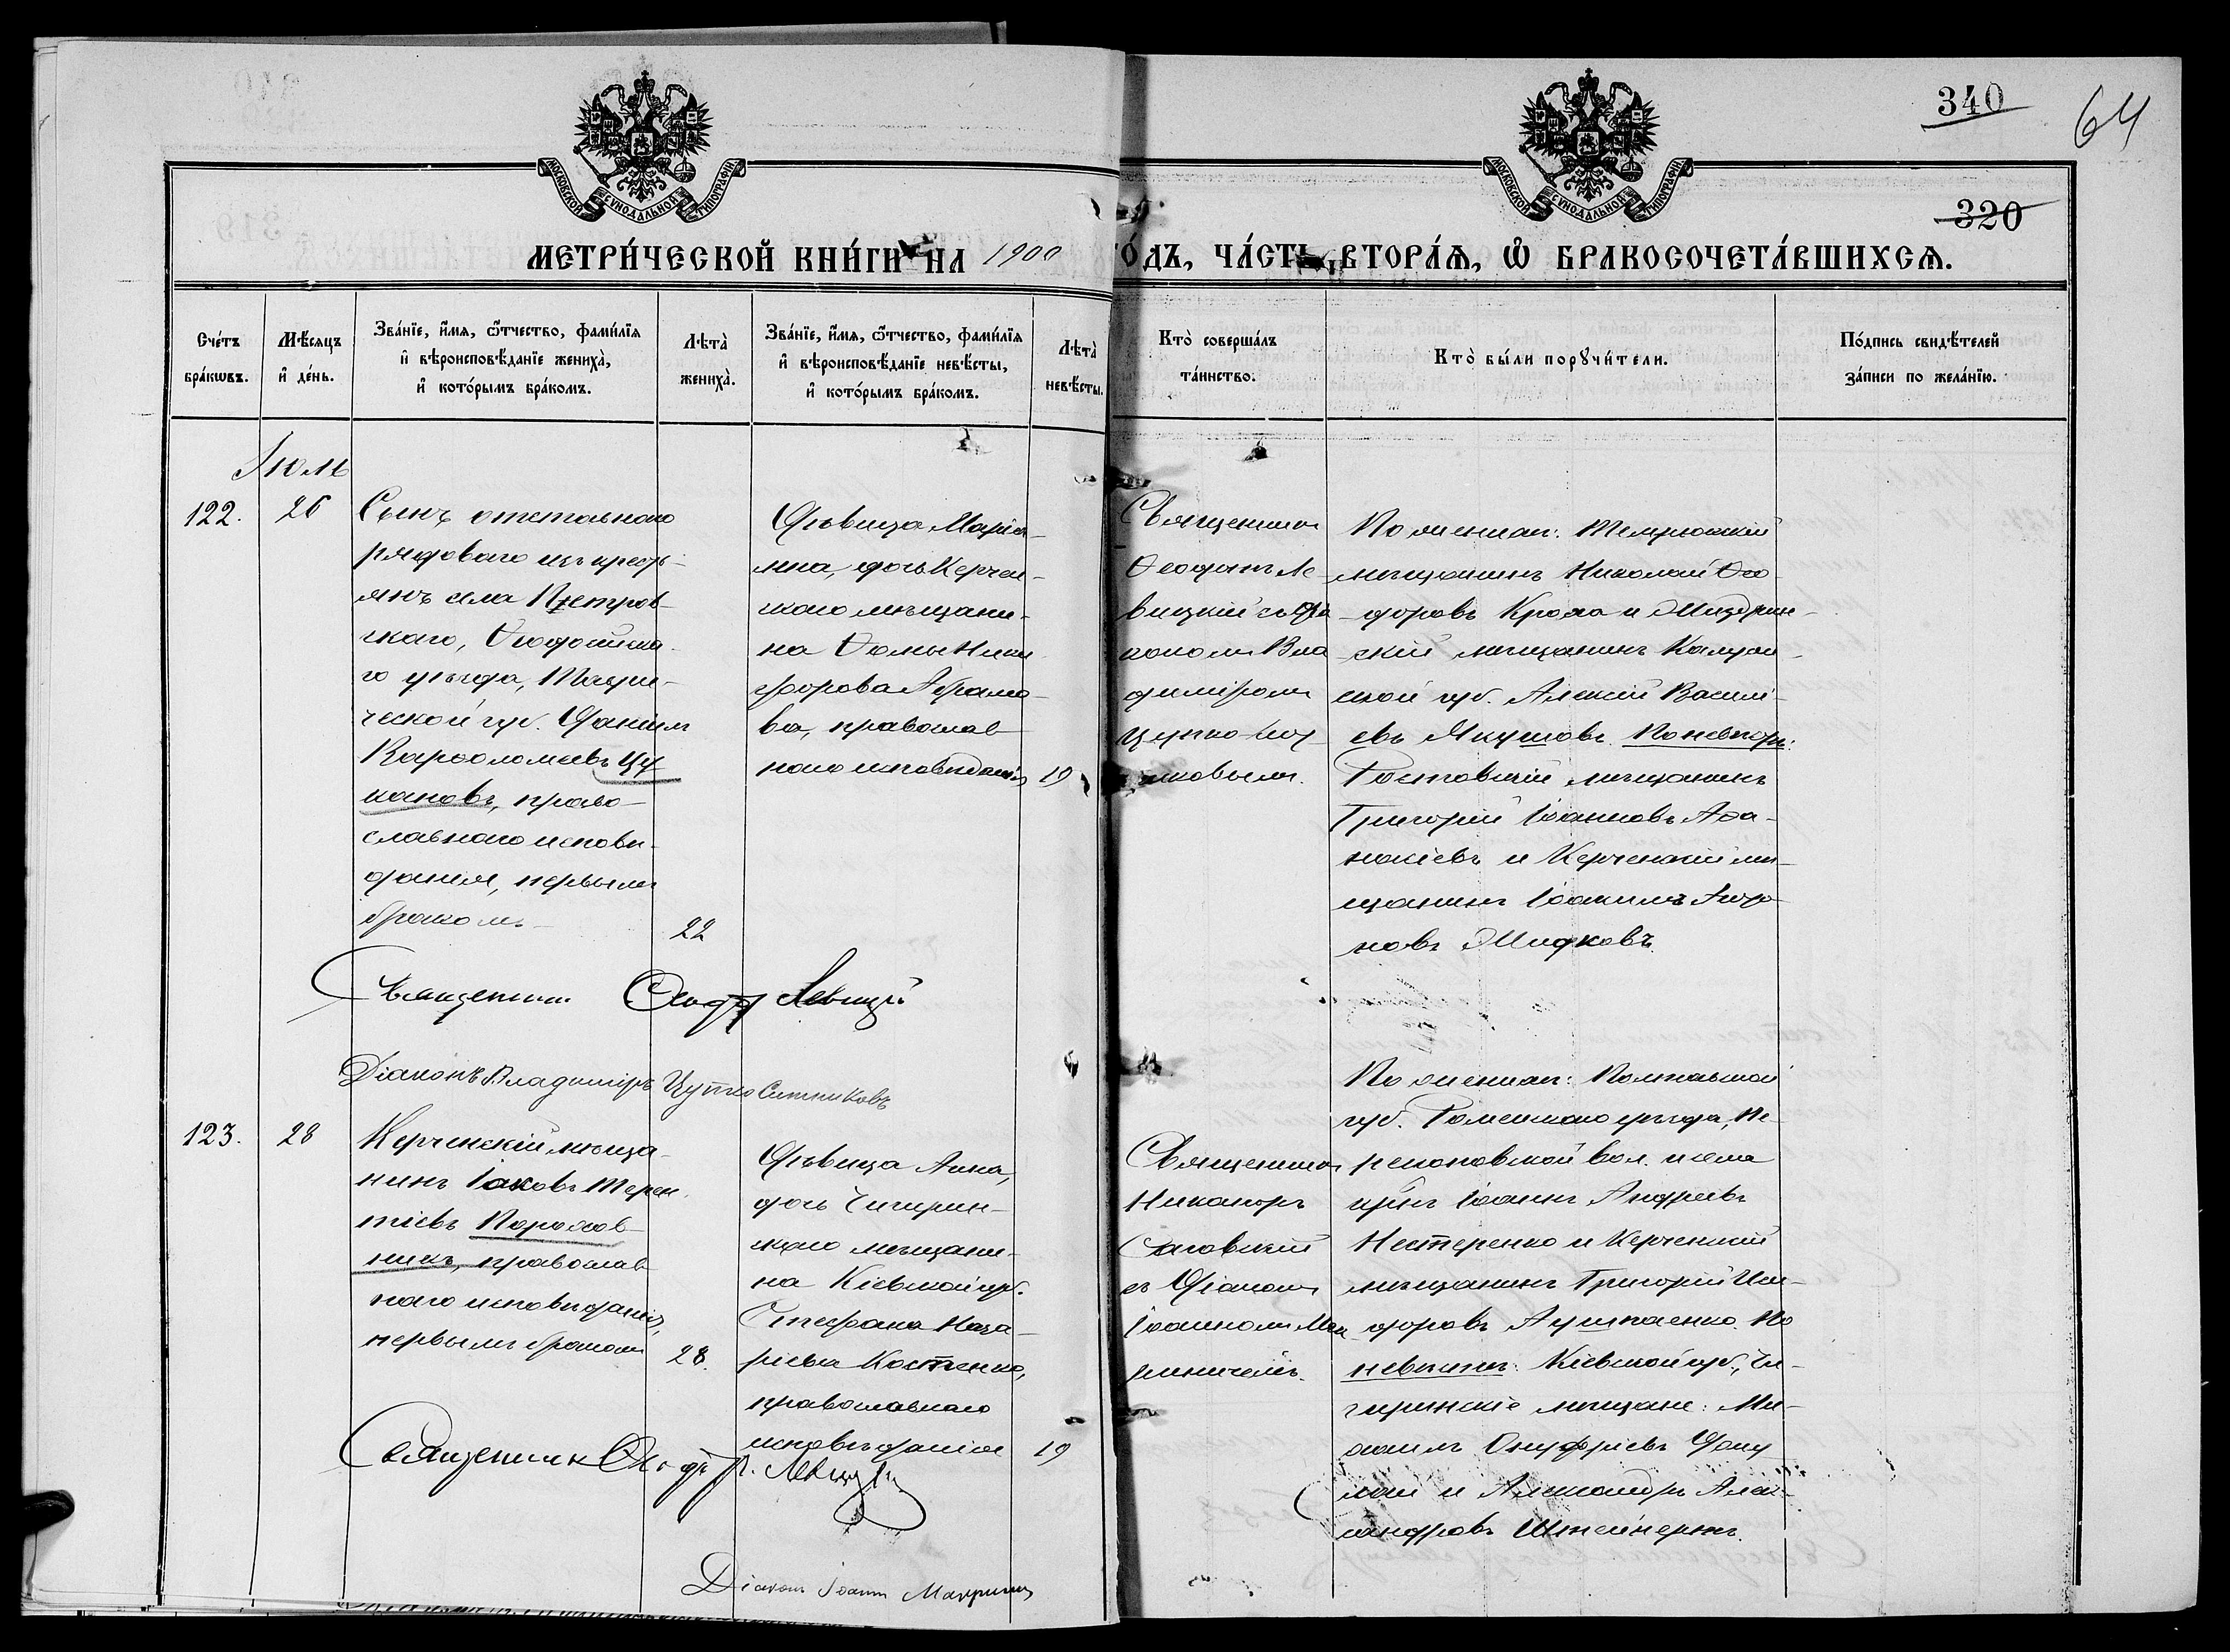 340
64
320
МОСКОВСКОЙ СѴНОДАЛЬНОЙ ТИПОГРАФІИ
МОСКОВСКОЙ СѴНОДАЛЬНОЙ ТИПОГРАФІИ
МЕТРИ́ЧЕСКОЙ КНИ́ГИ НА 1900 ГО́ДЪ, ЧА́СТЬ ВТОРА́Я, Ѽ БРАКОСОЧЕТА́ВШИХСЯ.
Сче́тъ
бра́кωвъ.
Мѣ́сяцъ
и҆ де́нь.
Зва́нїе, и҆́мя, ѻ҆́тчество, фами́лїя
и҆ вѣроисповѣ́данїе жениха̀,
и҆ кото́рымъ бра́комъ.
Лѣта̀
жениха̀.
Зва́нїе, и҆́мя, ѻ҆́тчество, фами́лїя
и҆ вѣроисповѣ́данїе невѣ́сты,
и҆ кото́рымъ бра́комъ.
Лѣта̀
невѣ́сты.
Кто̀ соверша́лъ
та́инство.
Кто̀ бы́ли порꙋчи́тели.
По́дпись свидѣ́телей
за́писи по жела́нїю.
Іюль
122.
26
Сынъ отставнаго
рядоваго изъ кресть-
янъ села Петров-
скаго, Ѳеодосійска-
го уѣзда, Таври-
ческой губ. Даніилъ
Варѳоломеевъ Цу-
кановъ, право-
славнаго исповѣ-
данія, первымъ
бракомъ
22
Дѣвица Маріа-
мна, дочь Керчен-
скаго мѣщани-
на Ѳомы Ники-
форова Абрамо-
ва, православ-
наго исповѣданія
19
Священникъ
Ѳеодоръ Ле-
вицкій съ діа-
кономъ Вла-
диміромъ
Цупко-Сит-
никовымъ.
По женихѣ: Темрюкскій
мѣщанинъ Николай Ѳео-
доровъ Кроха и Мещовскій
мѣщанинъ Калуж-
ской губ. Алексій Василі-
евъ Якушовъ. По невѣстѣ:
Ростовскій мѣщанинъ
Григорій Іоанновъ Аѳа-
насіевъ и Керченскій мѣ-
щанинъ Іоакимъ
Мидковъ.
Священникъ Ѳеодоръ Левицкій
Діаконъ Владиміръ Цупко Ситниковъ
123.
28
Керченскій мѣща-
нинъ Іаковъ Терен-
тіевъ Порохов-
никъ, православ-
наго исповѣданія,
первымъ бракомъ
28.
Дѣвица Анна,
дочь Чигирин-
скаго мѣщани-
на Кіевской губ.
Стефана Наза-
ріева Костенко,
православнаго
исповѣданія
19
Священникъ
Никаноръ
Саговскій
съ Діакономъ
Іоанномъ Мак-
риничемъ.
По женихѣ: Полтавской
губ. Роменскаго уѣзда, Пе-
рекоповской вол. и села
кр-нъ Іоаннъ Андреевъ
Нестеренко и Керченскій
мѣщанинъ Григорій Ни-
форовъ Лушпаенко. По
невѣстѣ: Кіевской губ., Чи-
гиринскіе мѣщане: Ми-
хаилъ Онуфріевъ
и Александръ Алек-
сандровъ Штейнертъ.
Священникъ Ѳеодоръ Левицкій
Діаконъ Іоаннъ Макриничъ